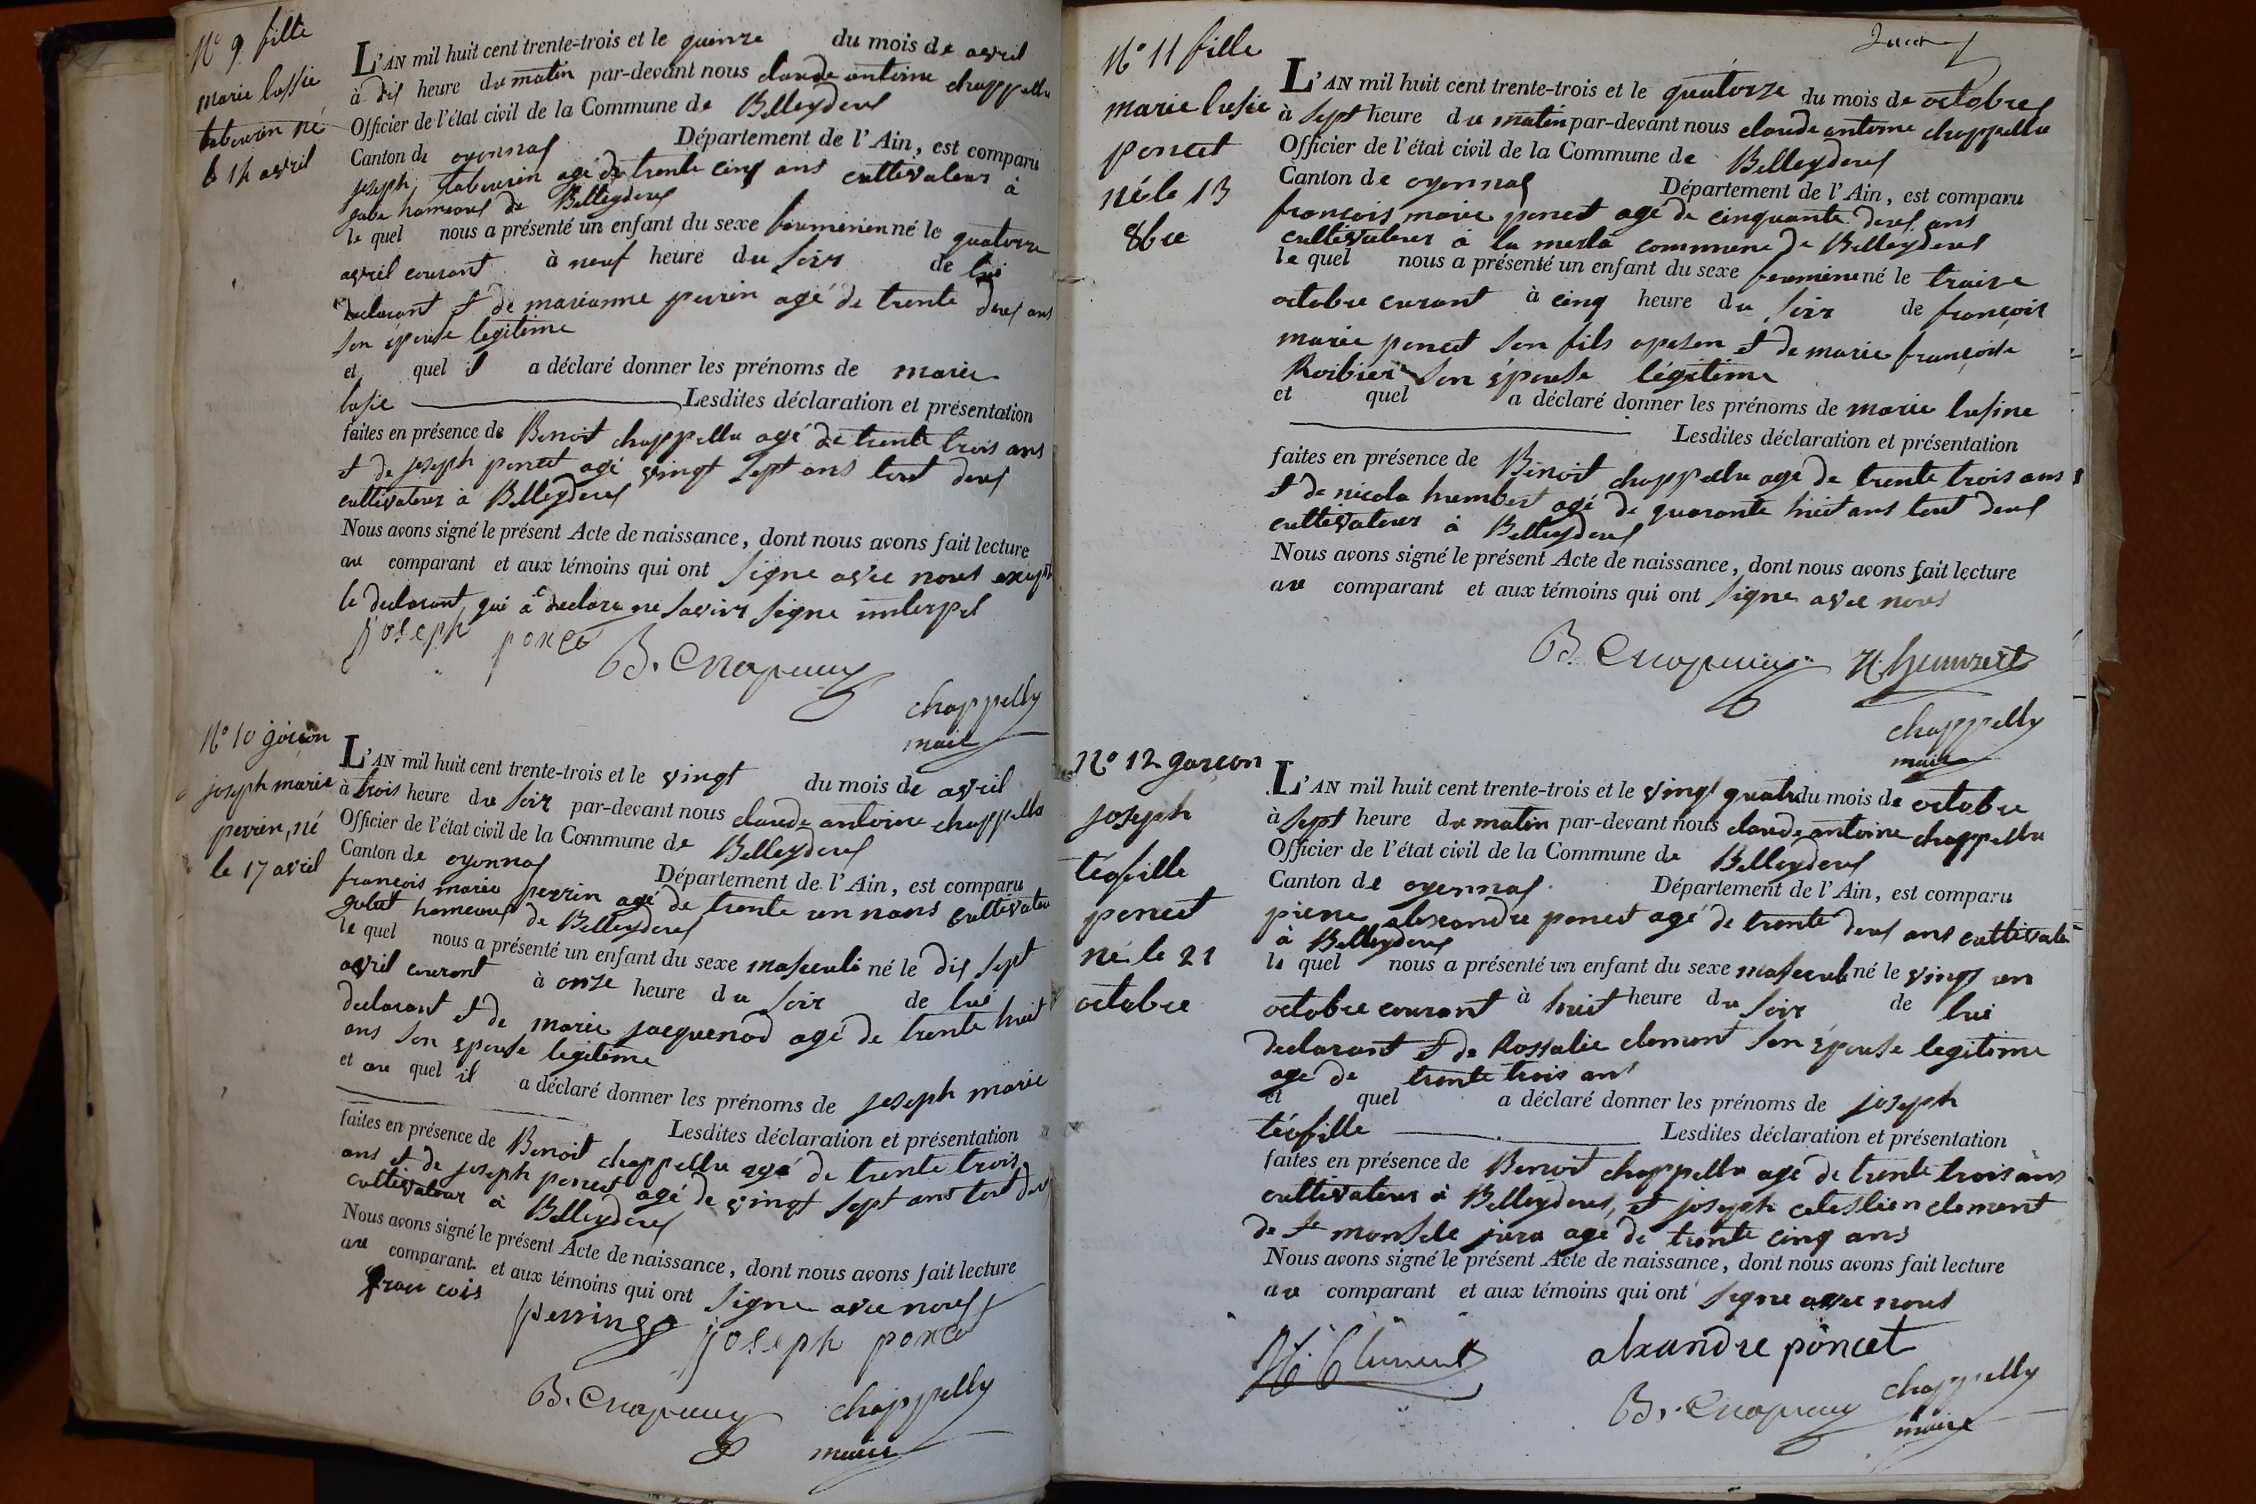 N° 9 fille
marie lussie
tabourin né
le 14 avril
L'AN mil huit cent trente-trois et le quinze du mois de avril
à dix heure du matin par-devant nous claude antoine chappellu
Officier de l'état civil de la Commune de Belleydoux
Canton de oyonnax Département de l'Ain, est comparu
joseph tabourin agé de trente cinq ans cultivateur à
hameaux de Belleydoux
le quel nous a présenté un enfant du sexe né le quatorze
avril courant à neuf heure du soir de lui
declarant et de marianne perrin agé de trente deux ans
son épouse legitime
et quel il a déclaré donner les prénoms de marie
lusie Lesdites déclaration et présentation
faites en présence de Benoit chappellu agé de trente trois ans
et de joseph poncet agé vingt sept ans tout deux
cultivateur à Belleydoux
Nous avons signé le présent Acte de naissance, dont nous avons fait lecture
au comparant et aux témoins qui ont signe avec nous
le declarant qui a declare ne savoir signe
joseph poncé
B. Chapelluy
chappelly
maire
N° 10 garcon
joseph marie
perrin, né
le 17 avril
L'AN mil huit cent trente-trois et le vingt du mois de avril
à trois heure du soir par-devant nous claude antoine chappellu
Officier de l'état civil de la Commune de Belleydoux
Canton de oyonnax Département de l'Ain, est comparu
francois marie perrin agé de trente un nans cultivateu
hameaux de Belleydoux
le quel nous a présenté un enfant du sexe masculi né le dix sept
avril courant à onze heure du soir de lui
declarant et de marie jacquenod agé de trente huit
ans son epouse legitime
et au quel il a déclaré donner les prénoms de joseph marie
Lesdites déclaration et présentation
faites en présence de Benoit chappellu agé de trente trois
ans et de joseph poncet agé de vingt sept ans tout deux
cultivateur à Belleydoux
Nous avons signé le présent Acte de naissance, dont nous avons fait lecture
au comparant et aux témoins qui ont signe avec nous
francois perrin
joseph poncé
B. Chapelluy chappelly
maire
N° 11 fille
marie lusie
poncet
né le 13
8bre
L'AN mil huit cent trente-trois et le quatorze du mois de octobre
à sept heure du matin par-devant nous claude antoine chappellu
Officier de l'état civil de la Commune de Belleydoux
Canton de oyonnax Département de l'Ain, est comparu
françois marie poncet agé de cinquante deux ans
cultivateur à la merla commune de Belleydoux
le quel nous a présenté un enfant du sexe feminine né le traize
octobre curant à cinq heure du soir de françois
marie poncet son fils et de marie françoise
Roibier son épouse légitime
et quel a déclaré donner les prénoms de marie lusine
Lesdites déclaration et présentation
faites en présence de Benoit chappellu agé de trente trois ans
et de nicola humbert agé de quarante huit ans tout deux
cultivateur à Belleydoux
Nous avons signé le présent Acte de naissance, dont nous avons fait lecture
au comparant et aux témoins qui ont signe avec nous
B. Chapelluy
chappelly
maire
N° 12 garcon
joseph
téofille
poncet
né le 21
octobre
L'AN mil huit cent trente-trois et le vingt quatre du mois de octobre
à sept heure du matin par-devant nous claude antoine chappellu
Officier de l'état civil de la Commune de Belleydoux
Canton de oyonnax Département de l'Ain, est comparu
pierre alexandre poncet agé de trente deux ans cultivate
à Belleydoux
le quel nous a présenté un enfant du sexe masculi né le vingt un
octobre courant à huit heure du soir de lui
declarant et de Rossalie clement son épouse legitime
age de trente trois ans
et quel a déclaré donner les prénoms de joseph
téofille Lesdites déclaration et présentation
faites en présence de Benoit chappellu agé de trente trois ans
cultivateur à Belleydoux, et joseph celestien clement
de jura agé de trente cinq ans
Nous avons signé le présent Acte de naissance, dont nous avons fait lecture
au comparant et aux témoins qui ont signe avec nous
Clement alxandre poncet
B. Chapelluy chappelly
maire